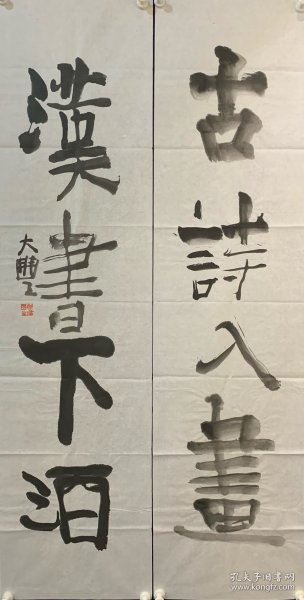 古詩入畫
漢書下酒
大豐
孔夫子旧书网